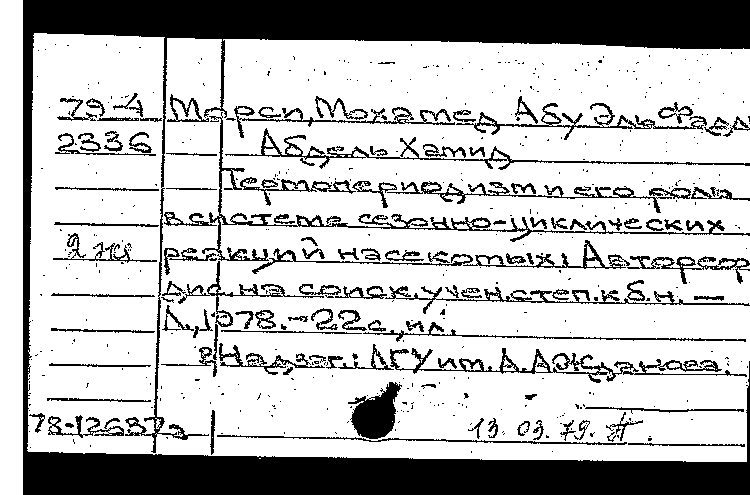 79-4 Морси, Мохамед Абу Эль Фадл
2336 Абдель Хамид
Термопериодизм и его роль
в системе сезонно-циклических
2 экз реакций насекомых: Автореф
дис. на соиск. учен. степ. к.б.н. —
Л., 1978. - 22 с., ил.
В надзаг.: ЛГУ им. А. А. Жданова.
78-12637а
13.03.79.